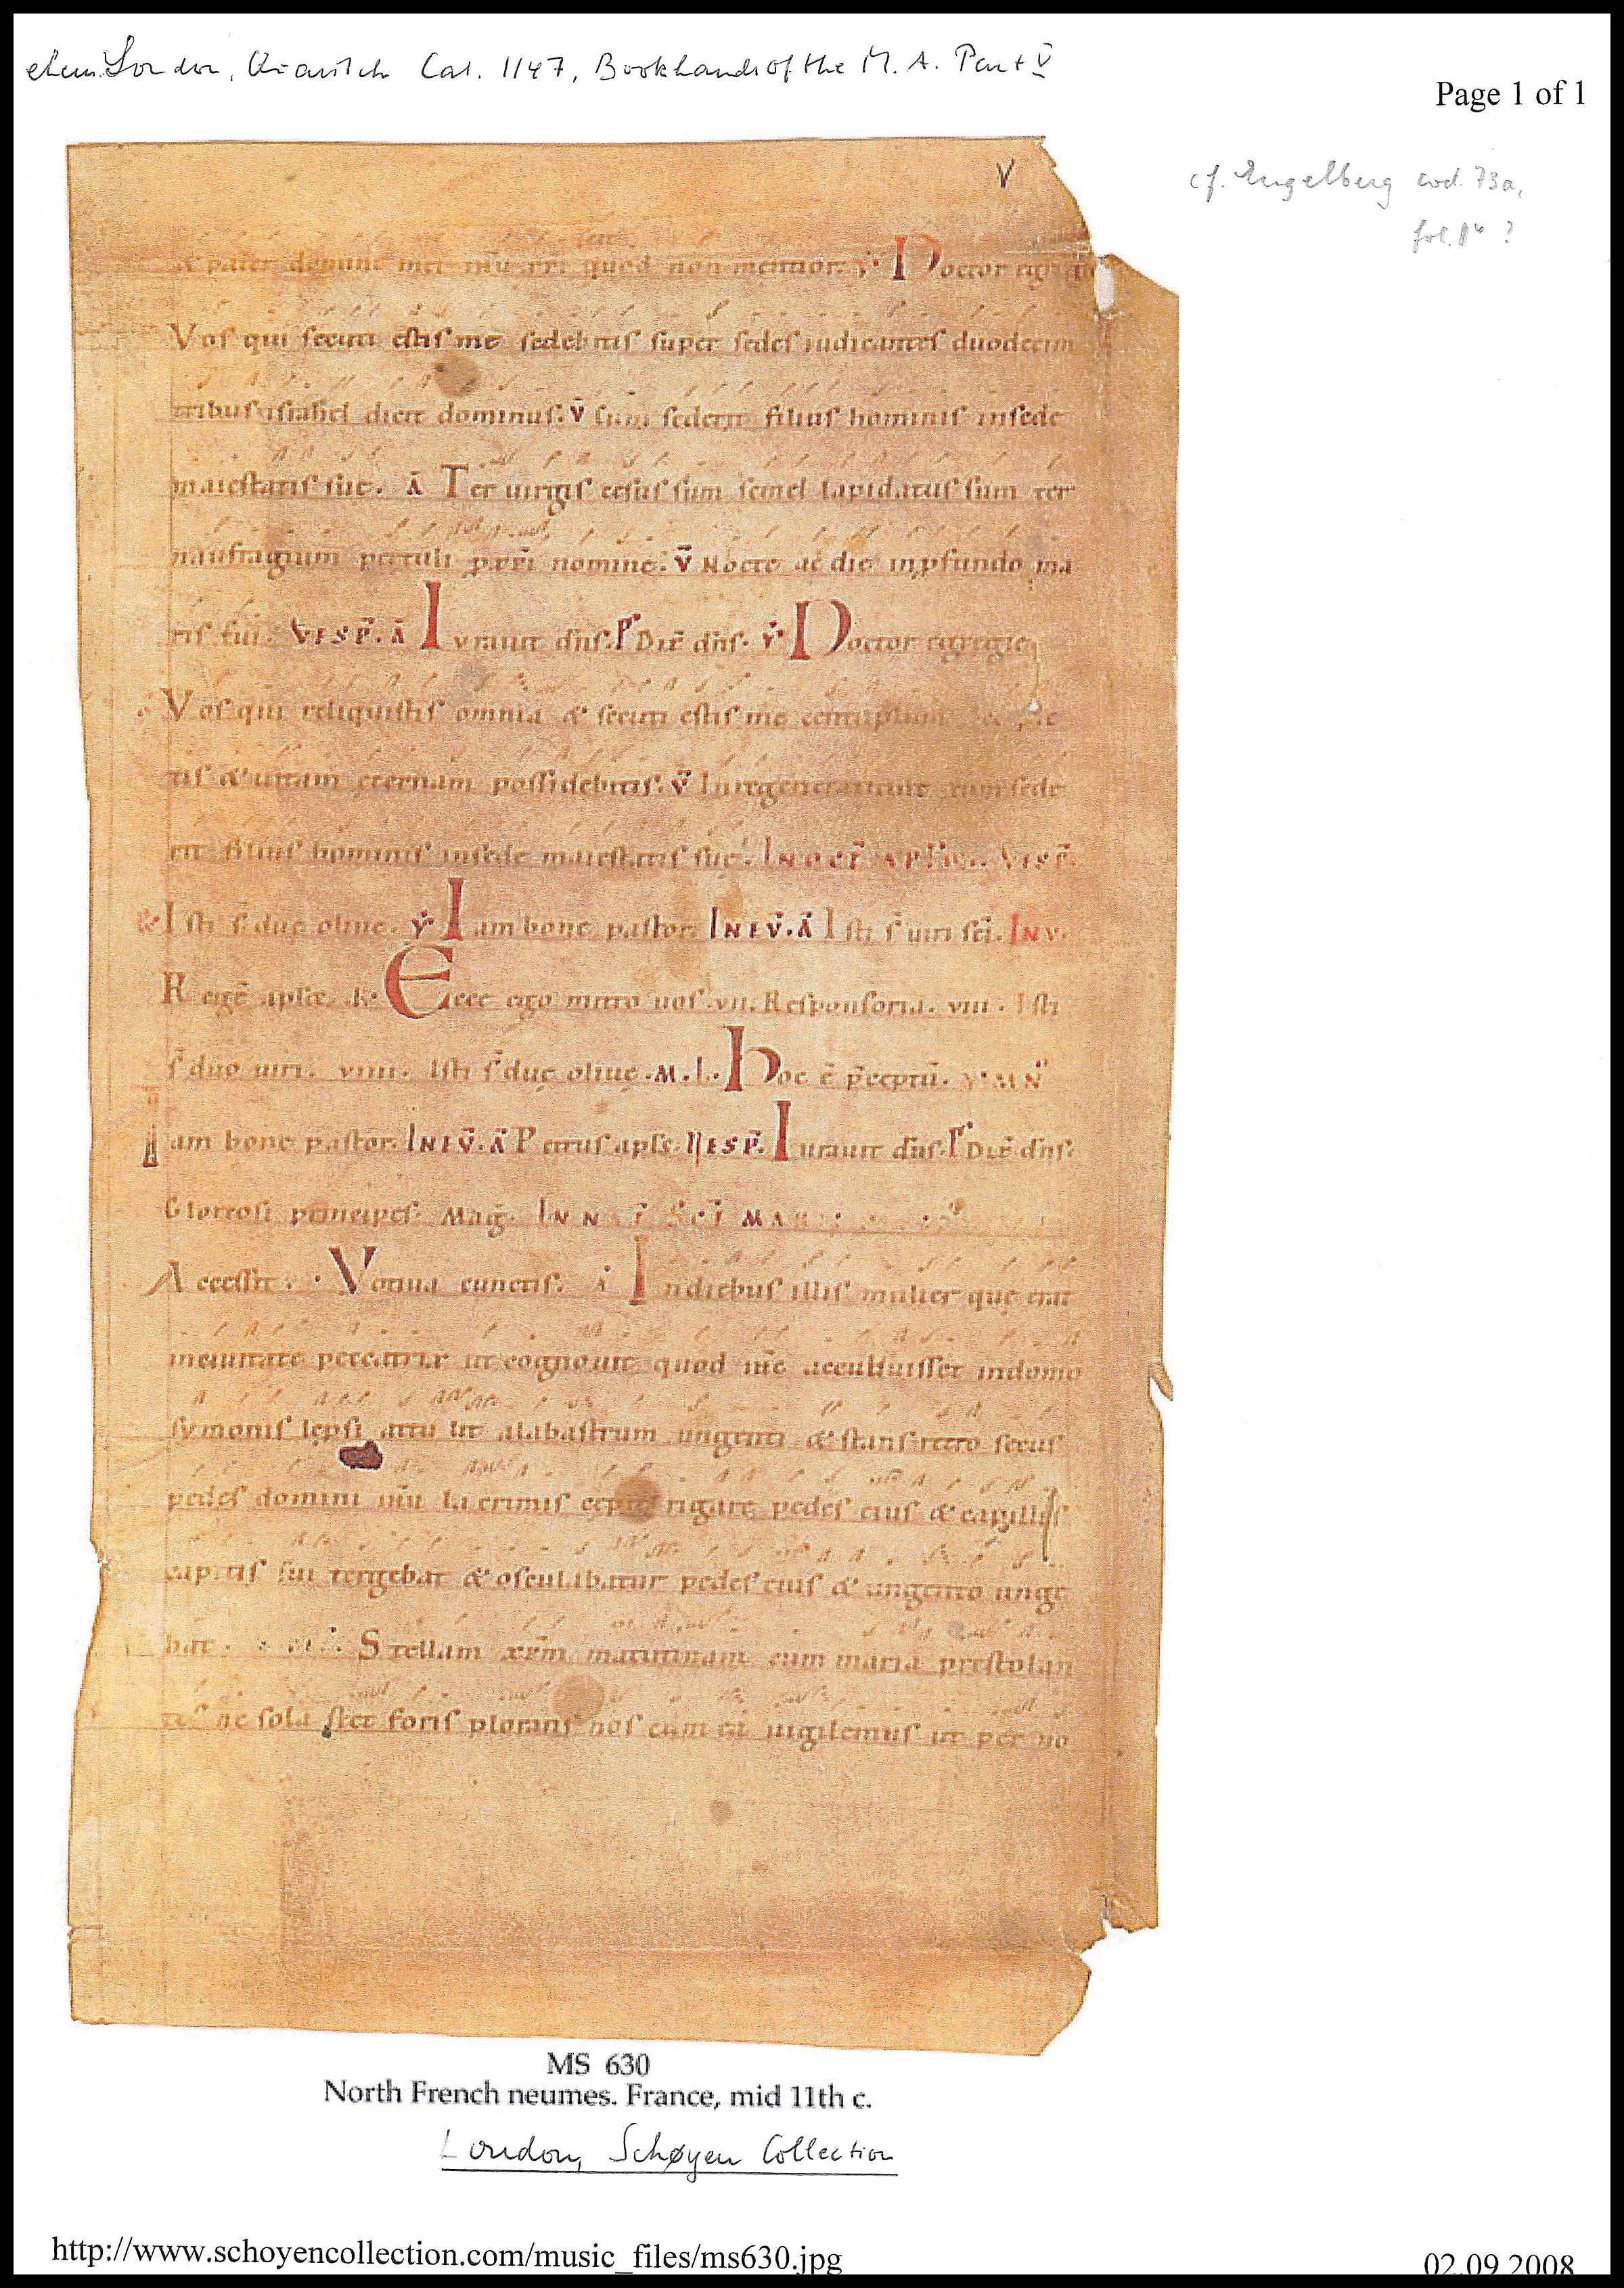 ehem. London, Quaritch Cat. 1147, Bookhands of the M. A. Part V
Page 1 of 1
cf. Engelberg cod. 73a,
fol. ?
V
& pater domini mei iħu xpi quod non mentior. Doctor egregie
Vos qui secuti estis me sedebitis super sedes iudicantes duodecim
tribus israhel dicit dominus. v̄ Cum sederit filius hominis insede
maiestatis suę. Ā Ter uirgis cesus sum semel lapidatus sum ter
naufragium pertuli p xpi nomine. v̄ Nocte ac die inpfundo ma
ris fui. VESP̄. Ā Iurauit dn̄s. P̄ Dix̄ dn̄s. Doctor egregie
Vos qui reliquistis omnia & secuti estis me centuplum
tis & uitam ęternam possidebitis. v̄ Inregeneratione cum sede
rit filius hominis insede maiestatis suę. IN VESP̄.
Isti s̄ duę oliuę. Iam bone pastor. IN EV̄. Ā Isti s̄ uiri sc̄i. INV.
Regē ap̄l̄o. R. Ecce ego mitto uos. vii. Responsoria. viii. Isti
s̄ duo uiri. viiii. Isti s̄ duę oliuę. M. L. Hoc ē p̄ceptū.
Iam bone pastor. IN EV̄. Ā Petrus ap̄ls. VESP̄. Iurauit dn̄s. P̄ Dix̄ dn̄s.
Gloriosi principes. Mag̅. IN SC̄I MAR
Accessit. Votiua cunctis. Ā Indiebus illis mulier quę erat
inciuitate peccatrix ut cognouit quod iħc accubuisset indomo
symonis lepsi attulit alabastrum ungenti & stans retro secus
pedes domini iħu lacrimis cępit rigare pedes eius & capillis
capitis sui tergebat & osculabatur pedes eius & ungento unge
bat. Stellam xpm matutinam cum maria prestolan
tes ne sola stet foris plorans nos cum ea uigilemus ut per no
MS 630
North French neumes. France, mid 11th c.
London, Schøyen Collection
http://www.schoyencollection.com/music_files/ms630.jpg
02.09.2008